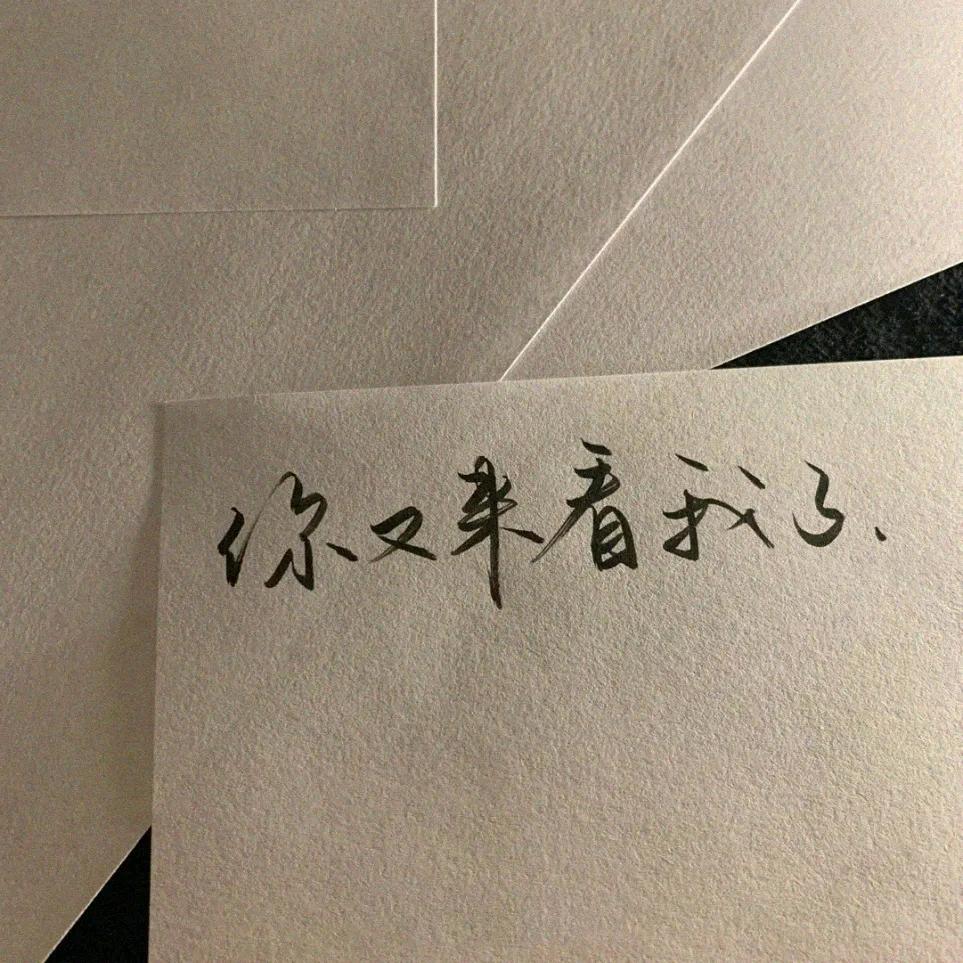 你又来看我了、